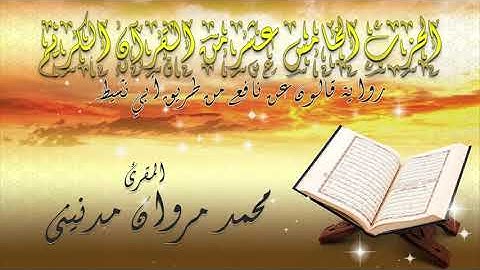 الحزب الخامس عشر من القرآن الكريم
رواية قالون عن نافع من طريق أبي نشيط
المقرئ
محمد مروان مدنيني